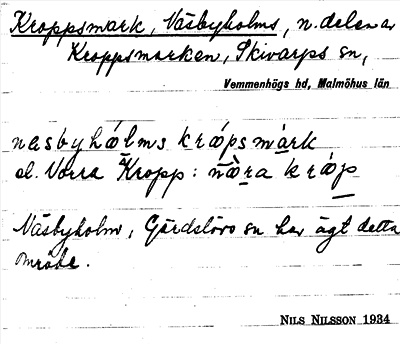 Kroppsmark, Näsbyholms, n. delen av
Kroppsmarken, Skivarps sn,
Vemmenhögs hd, Malmöhus län
nasbyhǿlms krǿpsmark
el. Norra Kropp: nǽra krǿp
Näsbyholm, Gärdslövs sn har ägt detta
område.
NILS NILSSON 1934